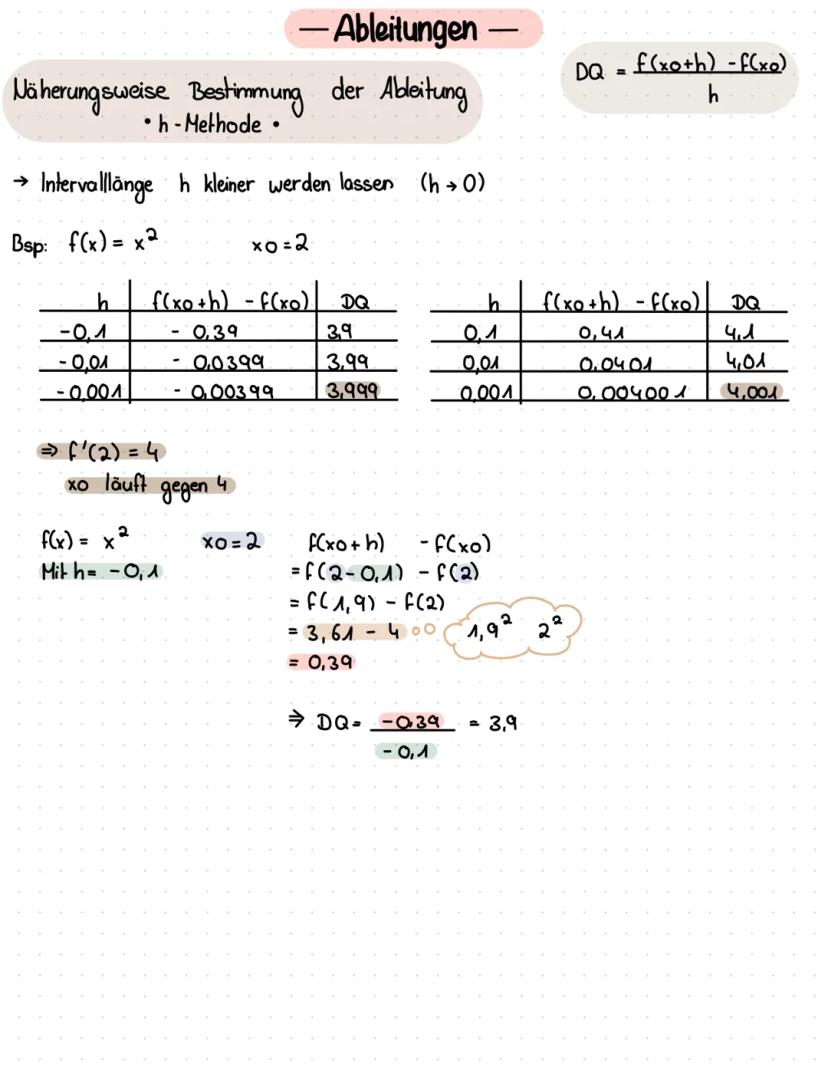 — Ableitungen —
DQ = f(x0+h) - f(x0)
h
Näherungsweise Bestimmung der Ableitung
• h - Methode •
→ Intervalllänge h kleiner werden lassen (h → 0)
Bsp: f(x) = x² x0 = 2
h f(x0+h) - f(x0) DQ
-0,1 - 0,39 3,9
-0,01 - 0,0399 3,99
-0,001 - 0,00399 3,999
h f(x0+h) - f(x0) DQ
0,1 0,41 4,1
0,01 0,0401 4,01
0,001 0,004001 4,001
⇒ f'(2) = 4
x0 läuft gegen 4
f(x) = x² x0 = 2
Mit h = -0,1
f(x0+h) - f(x0)
= f(2-0,1) - f(2)
= f(1,9) - f(2)
= 3,61 - 4 1,9² 2²
= 0,39
⇒ DQ = -0,39 = 3,9
-0,1